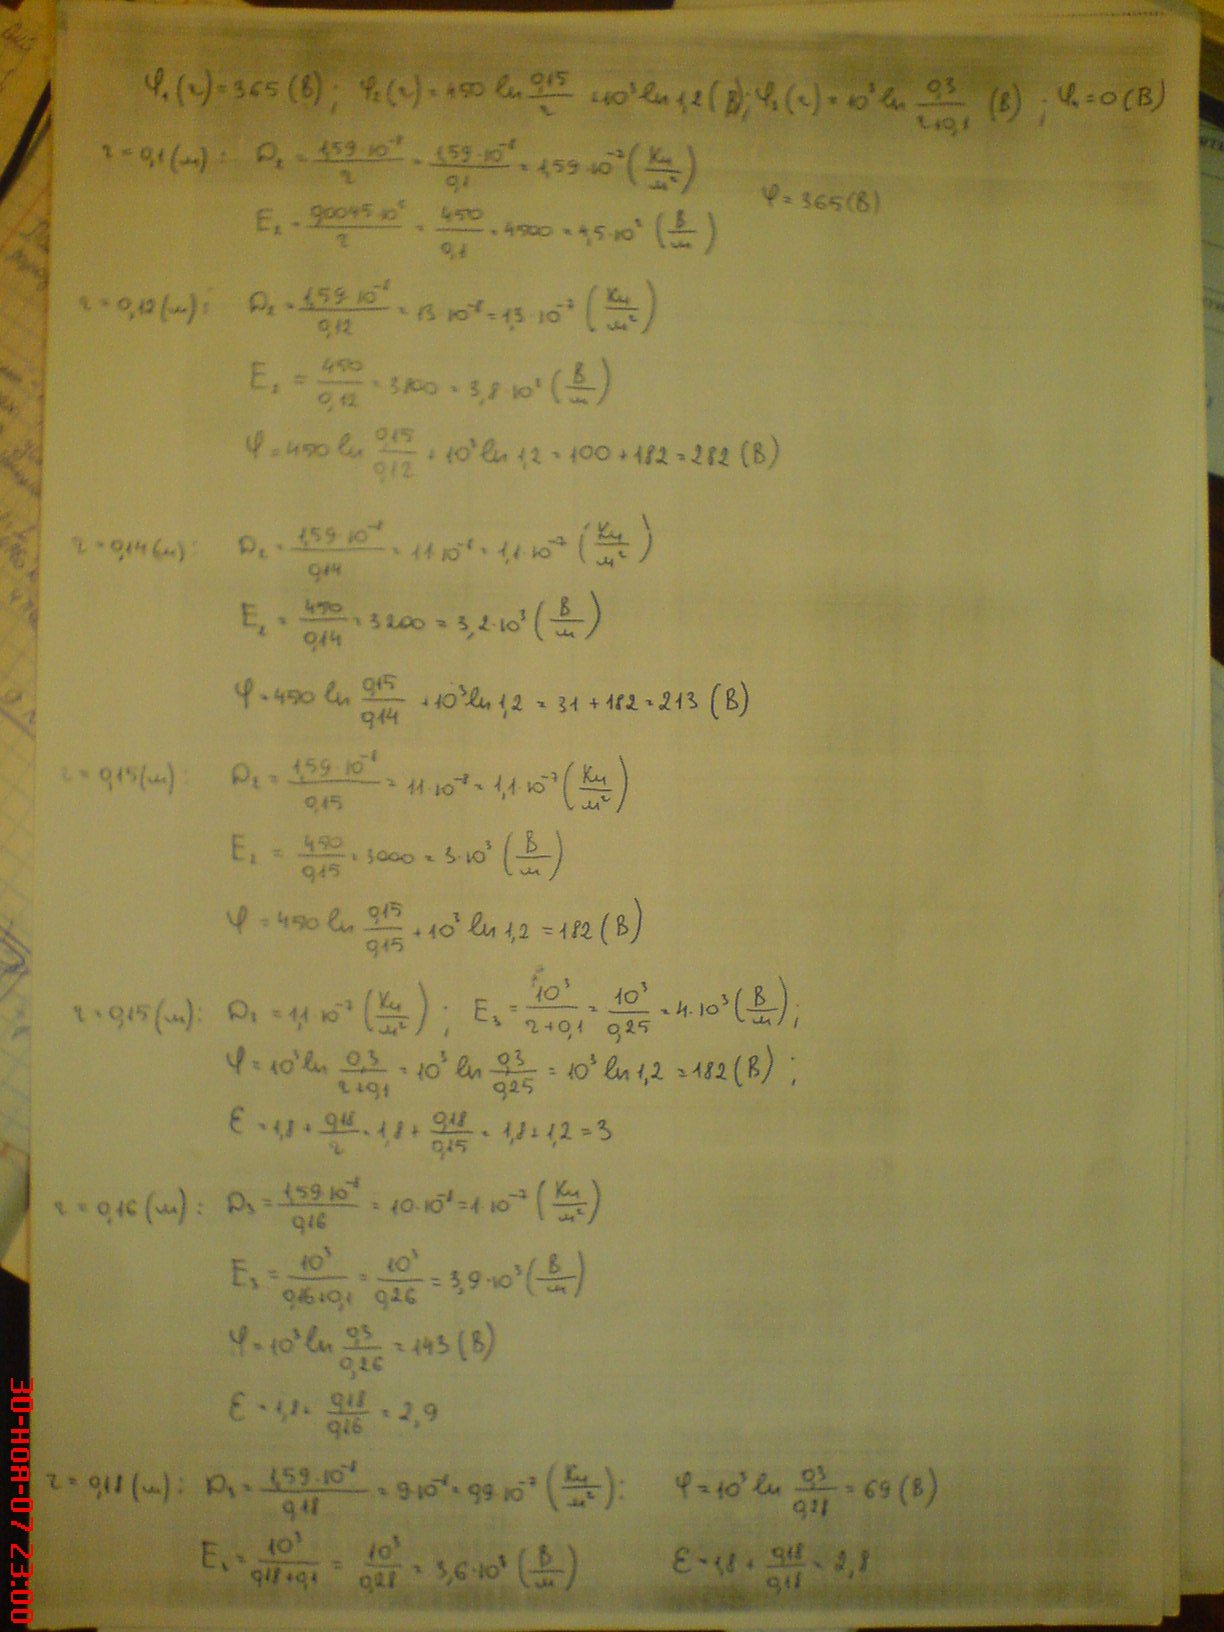 φ₁(r)=365(В); φ₂(r)=450 ln 0,15/r +10³ ln 1,2(В); φ₃(r)=10³ ln 0,3/r+0,1 (В); φ₄=0(В)
r=0,1(м): D₂ = 1,59·10⁻⁸/r = 1,59·10⁻⁸/0,1 = 1,59·10⁻⁷ (Кл/м²)
φ=365(В)
E₂ = 450/0,1 = 4500 = 4,5·10³ (В/м)
r=0,12(м): D₂ = 1,59·10⁻⁸/0,12 = 13·10⁻⁸ = 1,3·10⁻⁷ (Кл/м²)
E₂ = 450/0,12 = 3800 = 3,8·10³ (В/м)
φ=450 ln 0,15/0,12 + 10³ ln 1,2 = 100+182=282 (В)
r=0,14(м): D₂ = 1,59·10⁻⁸/0,14 = 11·10⁻⁸ = 1,1·10⁻⁷ (Кл/м²)
E₂ = 450/0,14 = 3200 = 3,2·10³ (В/м)
φ=450 ln 0,15/0,14 +10³ ln 1,2 = 31+182=213 (В)
r=0,15(м): D₂ = 1,59·10⁻⁸/0,15 = 11·10⁻⁸ = 1,1·10⁻⁷ (Кл/м²)
E₂ = 450/0,15 = 3000 = 3·10³ (В/м)
φ=450 ln 0,15/0,15 +10³ ln 1,2 =182(В)
r=0,15(м): D₃ = 1,1·10⁻⁷ (Кл/м²); E₃ = 10³/r+0,1 = 10³/0,25 = 4·10³ (В/м);
φ=10³ ln 0,3/r+0,1 = 10³ ln 0,3/0,25 = 10³ ln 1,2 =182(В);
ε = 1,8 + 0,18/r = 1,8 + 0,18/0,15 = 1,8+1,2=3
r=0,16(м): D₃ = 1,59·10⁻⁸/0,16 = 10·10⁻⁸ = 1·10⁻⁷ (Кл/м²)
E₃ = 10³/0,16+0,1 = 10³/0,26 = 3,9·10³ (В/м)
φ=10³ ln 0,3/0,26 = 143(В)
ε = 1,8 + 0,18/0,16 = 2,9
r=0,18(м): D₃ = 1,59·10⁻⁸/0,18 = 9·10⁻⁸ = 0,9·10⁻⁷ (Кл/м²): φ=10³ ln 0,3/0,28 = 69(В)
E₃ = 10³/0,18+0,1 = 10³/0,28 = 3,6·10³ (В/м) ε = 1,8 + 0,18/0,18 = 2,8
30-ноя-07 23:00